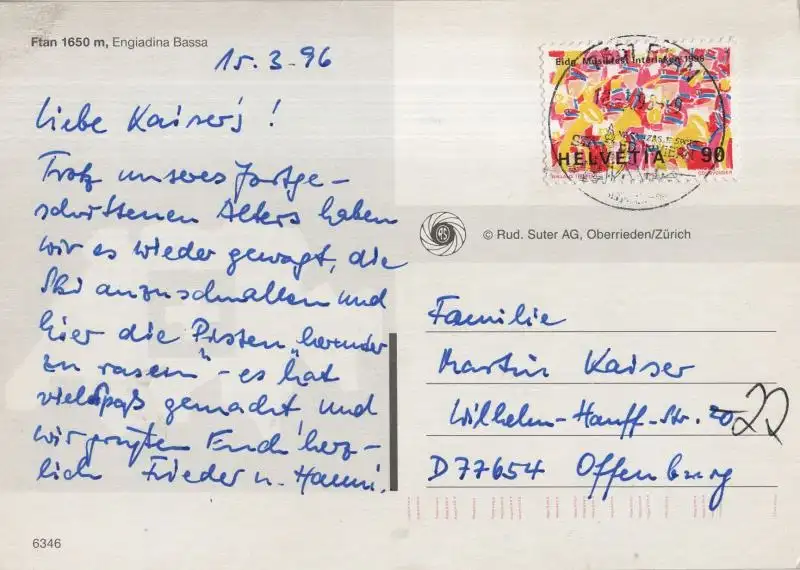 Ftan 1650 m, Engiadina Bassa
15.3.96
Liebe Kaiser's!
Trotz unseres fortge-
schrittenen Alters haben
wir es wieder gewagt, die
Ski anzuschnallen und
hier die Pisten „herunter
zu rasen“ - es hat
viel Spaß gemacht und
wir grüßen Euch herz-
lich Frieder u. Hanni.
6346
Eidg. Musikfest Interlaken 1996
HELVETIA 90
RS
© Rud. Suter AG, Oberrieden/Zürich
Familie
Martin Kaiser
Wilhelm-Hauff-Str. 20 22
D 77654 Offenburg